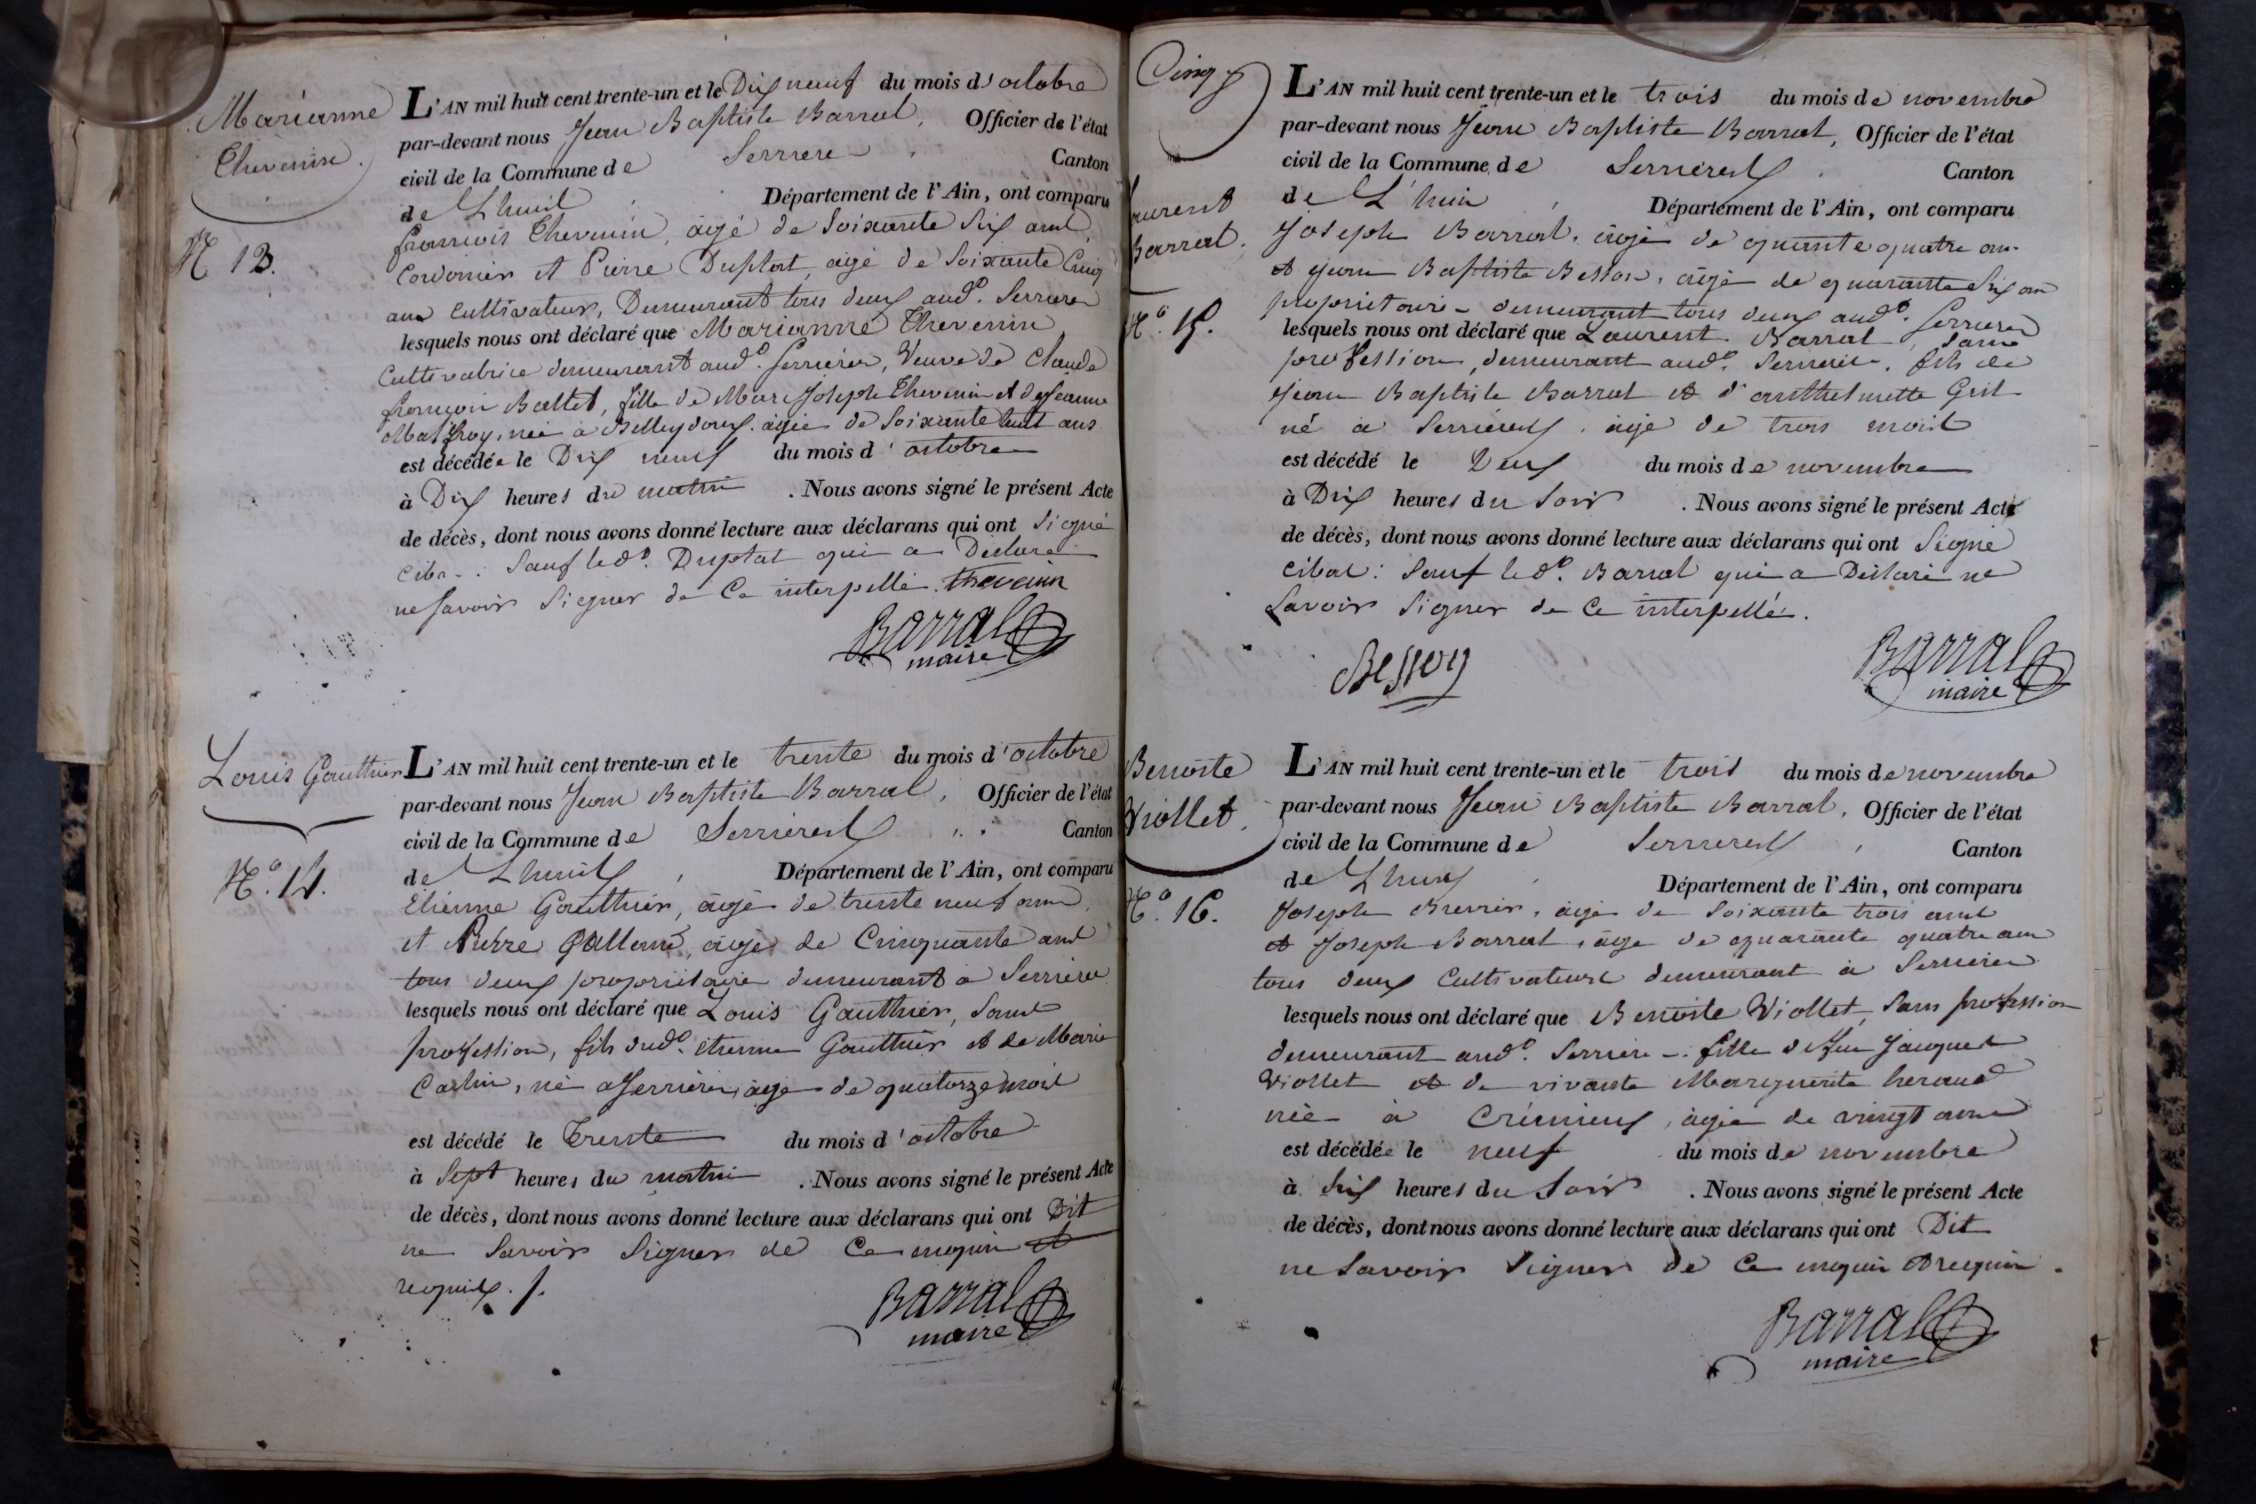 Marianne
Thevenin.
N 13.
L'AN mil huit cent trente-un et le Dix neuf du mois d'octobre
par-devant nous Jean Baptiste Barral, Officier de l'état
civil de la Commune de Serriere Canton
de Lhuil, Département de l'Ain, ont comparu
francois Thevenin, agé de Soixante Six ans,
Cordonier et Pierre Duplat, agé de Soixante Cinq
ans Cultivateur, Demeurant tous deux aud.o Serriere
lesquels nous ont déclaré que Marianne Thevenin
Cultivatrice demeurant aud.o Serrieres, Veuve de Claude
françois Ballet, fille de Marc Joseph Thevenin et de Jeanne
née à Belleydoux. agée de Soixante huit ans
est décédée le Dix neuf du mois d'octobre
à Dix heures du matin. Nous avons signé le présent Acte
de décès, dont nous avons donné lecture aux déclarans qui ont Signé
Sauf led.o Duplat qui a Déclaré
ne Savoir Signer de Ce interpellé. Thevenin
Barral
maire
Louis Gauthier
N.o 14.
L'AN mil huit cent trente-un et le trente du mois d'octobre
par-devant nous Jean Baptiste Barral, Officier de l'état
civil de la Commune de Serrieres Canton
de Lhuis, Département de l'Ain, ont comparu
Etienne Gauthier, agé de trente neuf ans,
et Pierre agé de Cinquante ans
tous deux propriétaire demeurant à Serriere
lesquels nous ont déclaré que Louis Gauthier, Sans
profession, fils dud.o etienne Gauthier et de Marie
né a Serriere, agé de quatorze mois
est décédé le Trente du mois d'octobre
à Sept heures du matin. Nous avons signé le présent Acte
de décès, dont nous avons donné lecture aux déclarans qui ont Dit
ne Savoir Signer de Ce enquis et
requis.
Barral
maire
Cinq
Laurent
Barral.
N.o 15.
L'AN mil huit cent trente-un et le trois du mois de novembre
par-devant nous Jean Baptiste Barral, Officier de l'état
civil de la Commune de Serrieres Canton
de L'huis, Département de l'Ain, ont comparu
Joseph Barral, agé de quante quatre ans
et Jean Baptiste Besson, agé de quarante Six ans
propriétaire demeurant tous deux aud.o Serriere
lesquels nous ont déclaré que Laurent Barral, Sans
profession, demeurant aud.o Serriere, fils de
Jean Baptiste Barral et d'anthelmette
né à Serrieres, agé de trois mois
est décédé le Deux du mois de novembre
à Dix heures du Soir. Nous avons signé le présent Acte
de décès, dont nous avons donné lecture aux déclarans qui ont Signé
Sauf led.o Barral qui a Déclaré ne
Savoir Signer de Ce interpellé.
Besson
Barral
maire
Benoite
Viollet.
N.o 16.
L'AN mil huit cent trente-un et le trois du mois de novembre
par-devant nous Jean Baptiste Barral, Officier de l'état
civil de la Commune de Serrieres, Canton
de Lhuis, Département de l'Ain, ont comparu
Joseph agé de Soixante trois ans
et Joseph Barral, agé de quarante quatre ans
tous deux Cultivateurs demeurant à Serriere
lesquels nous ont déclaré que Benoite Viollet, Sans profession
demeurant aud.o Serriere fille de feu Jacques
Viollet et de vivante Marguerite
née à Crémieux, agée de vingt ans
est décédée le neuf du mois de novembre
à Six heures du Soir. Nous avons signé le présent Acte
de décès, dont nous avons donné lecture aux déclarans qui ont Dit
ne Savoir Signer de Ce enquis et requis.
Barral
maire